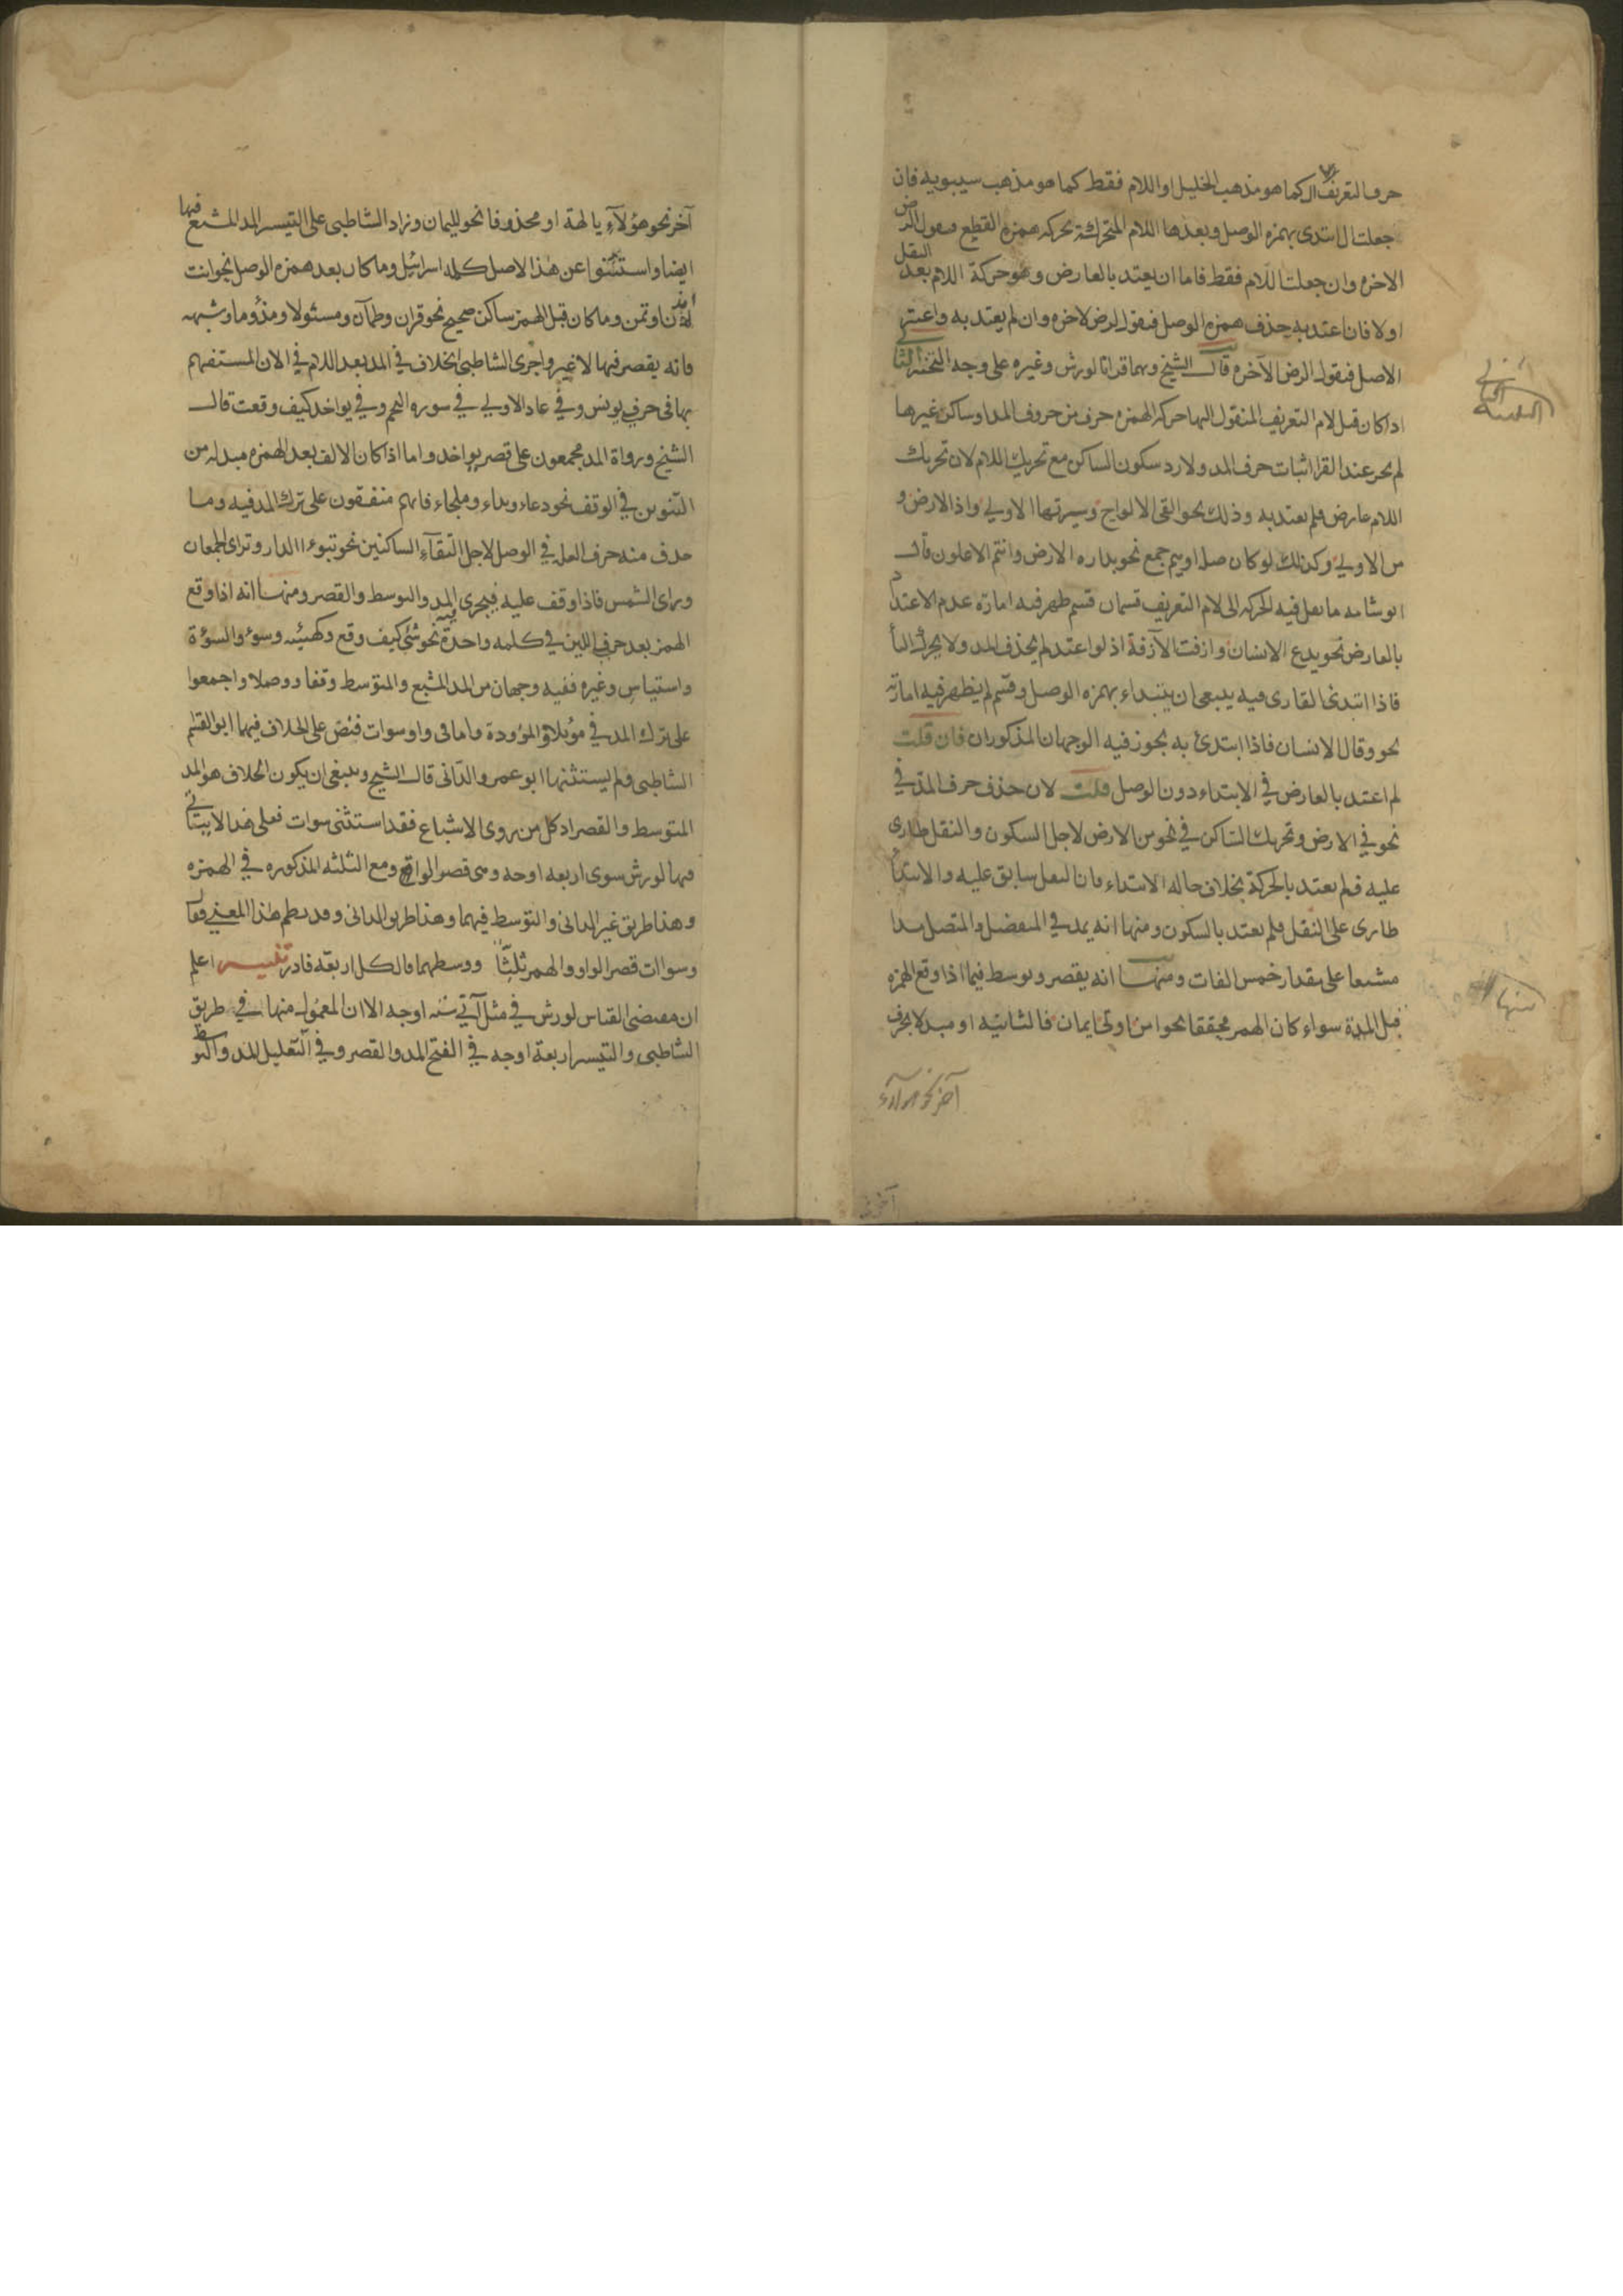 حرف التعريف ال كما هو مذهب الخليل او اللام فقط كما هو مذهب سيبويه فان
جعلت ال ابتدى بهمزه الوصل وبعدها اللام المتحركة بحركه همزه القطع فيقول الرض
الاخره وان جعلت اللام فقط فاما ان يعتد بالعارض وهو حركة اللام بعد النقل
اولا فان اعتد به حذف همزه الوصل فيقول لرض لاخره وان لم يعتد به واعتبر
الاصل فيقول الرض الآخره قال الشيخ وبهما قرانا لورش وغيره على وجه التخيير
اذا كان قبل لام التعريف المنقول اليها حركه الهمزه حرف من حروف المد او ساكن غيرها
لم يجز عند القرا اثبات حرف المد ولا رد سكون الساكن مع تحريك اللام لان تحريك
اللام عارض فلم يعتد به وذلك نحو القى الالواح وسيرتها الاولي واذا الارض و
من الاولي وكذلك لو كان صله او ميم جمع نحو بداره الارض وانتم الاعلون قال
ابو شامه ما نقل فيه الحركه الى لام التعريف قسمان قسم ظهر فيه امارة عدم الاعتداد
بالعارض نحو يدع الانسان وازفت الآزفة اذ لو اعتد لم يحذف المد ولا يحرك التا
فاذا ابتدئ القارى فيه ينبغي ان يبتداء بهمزه الوصل وقسم لم يظهر فيه امارته
نحو وقال الانسان فاذا ابتدئ به يجوز فيه الوجهان المذكوران فان قلت
لم اعتد بالعارض في الابتداء دون الوصل قلت لان حذف حرف المد في
نحو في الارض وتحريك الساكن في نحو من الارض لاجل السكون والنقل طارى
عليه فلم يعتد بالحركة بخلاف حاله الابتداء فان النقل سابق عليه والابتدأ
طارى على النقل فلم يعتد بالسكون ومنها انه يمد في المنفصل والمتصل مدا
مشبعا على مقدار خمس الفات ومنها انه يقصر ويوسط فيما اذا وقع الهمزه
قبل المدة سواء كان الهمز محققا نحو امن اوتي ايمان فالثانيه او مبدلا بحرف
آخر نحو هولآء
منها
آخر نحو هؤلآء يا لهة او محذوفا نحو لليمان وزاد الشاطبى على التيسير المد المشبع فيها
ايضا واستثنوا عن هذا الاصل كلمه اسرائيل وما كان بعد همزه الوصل نحو ايت
اوتمن وما كان قبل الهمز ساكن صحيح نحو قران وظمآن ومسئولا ومذؤما وشبهه
فانه يقصر فيها لا غير واجرى الشاطبى الخلاف في المد بعد اللام في الان المستفهم
بها في حرفي يونس وفي عاد الاولي في سوره النجم وفي يواخذ كيف وقعت قال
الشيخ ورواة المد مجمعون على قصر يواخذ واما اذا كان الالف بعد الهمزه مبدله من
التنوين في الوقف نحو دعاء ونداء وملجاء فانهم متفقون على ترك المد فيه وما
حذف منه حرف العله في الوصل لاجل التقآء الساكنين نحو تبوءا الدار وتراى الجمعان
وراى الشمس فاذا وقف عليه فيجرى المد والتوسط والقصر ومنها انه اذا وقع
الهمز بعد حرفي اللين في كلمه واحدة نحو شئ كيف وقع وكهيئه وسوء والسوءة
واستياس وغيره ففيه وجهان من المد المشبع والمتوسط وقفا ووصلا واجمعوا
على ترك المد في موئلا والمؤودة واما في واو سوات فنص على الخلاف فيهما ابو القسم
الشاطبى ولم يستثنها ابو عمر والدانى قال الشيخ وينبغى ان يكون الخلاف هو المد
المتوسط والقصر اذ كل من روى الاشباع فقد استثنى سوات فعلى هذا لا يتاتى
فيها لورش سوى اربعه اوجه وهى قصر الواو ومع الثلثه المذكوره في الهمزه
وهذا طريق غير الدانى والتوسط فيهما وهذا طريق الدانى وقد نظم هذا المعنى فقال
وسوات قصر الواو والهمز ثلثا ووسطهما فالكل اربعة فادر اعلم
ان مقتضى القياس لورش في مثل آتى سته اوجه الا ان المعمول منها في طريق
الشاطبى والتيسير اربعة اوجه في الفتح المد والقصر وفي التقليل المد والتوسط